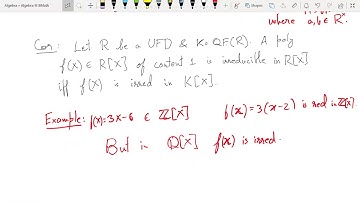 Algebra – Algebra III BMath
where a,b ∈ R*.
Cor: Let R be a UFD & K=QF(R). A poly
f(x) ∈ R[X] of content 1 is irreducible in R[X]
iff f(X) is irred in K[X].
Example: f(x)=3x-6 ∈ ℤ[X] f(x)=3(x-2) is red in ℤ[X].
But in ℚ[X] f(x) is irred.